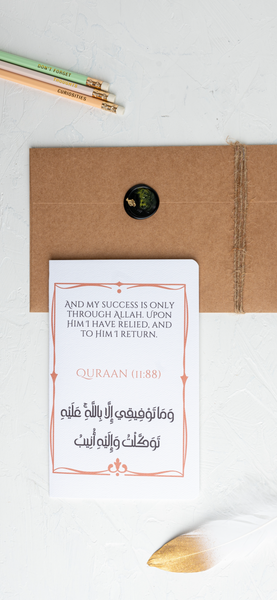 DON'T FORGET
CURIOSITIES
AND MY SUCCESS IS ONLY
THROUGH ALLAH. UPON
HIM I HAVE RELIED, AND
TO HIM I RETURN.
QURAAN (11:88)
وَمَا تَوْفِيقِي إِلَّا بِاللَّهِ ۚ عَلَيْهِ
تَوَكَّلْتُ وَإِلَيْهِ أُنِيبُ